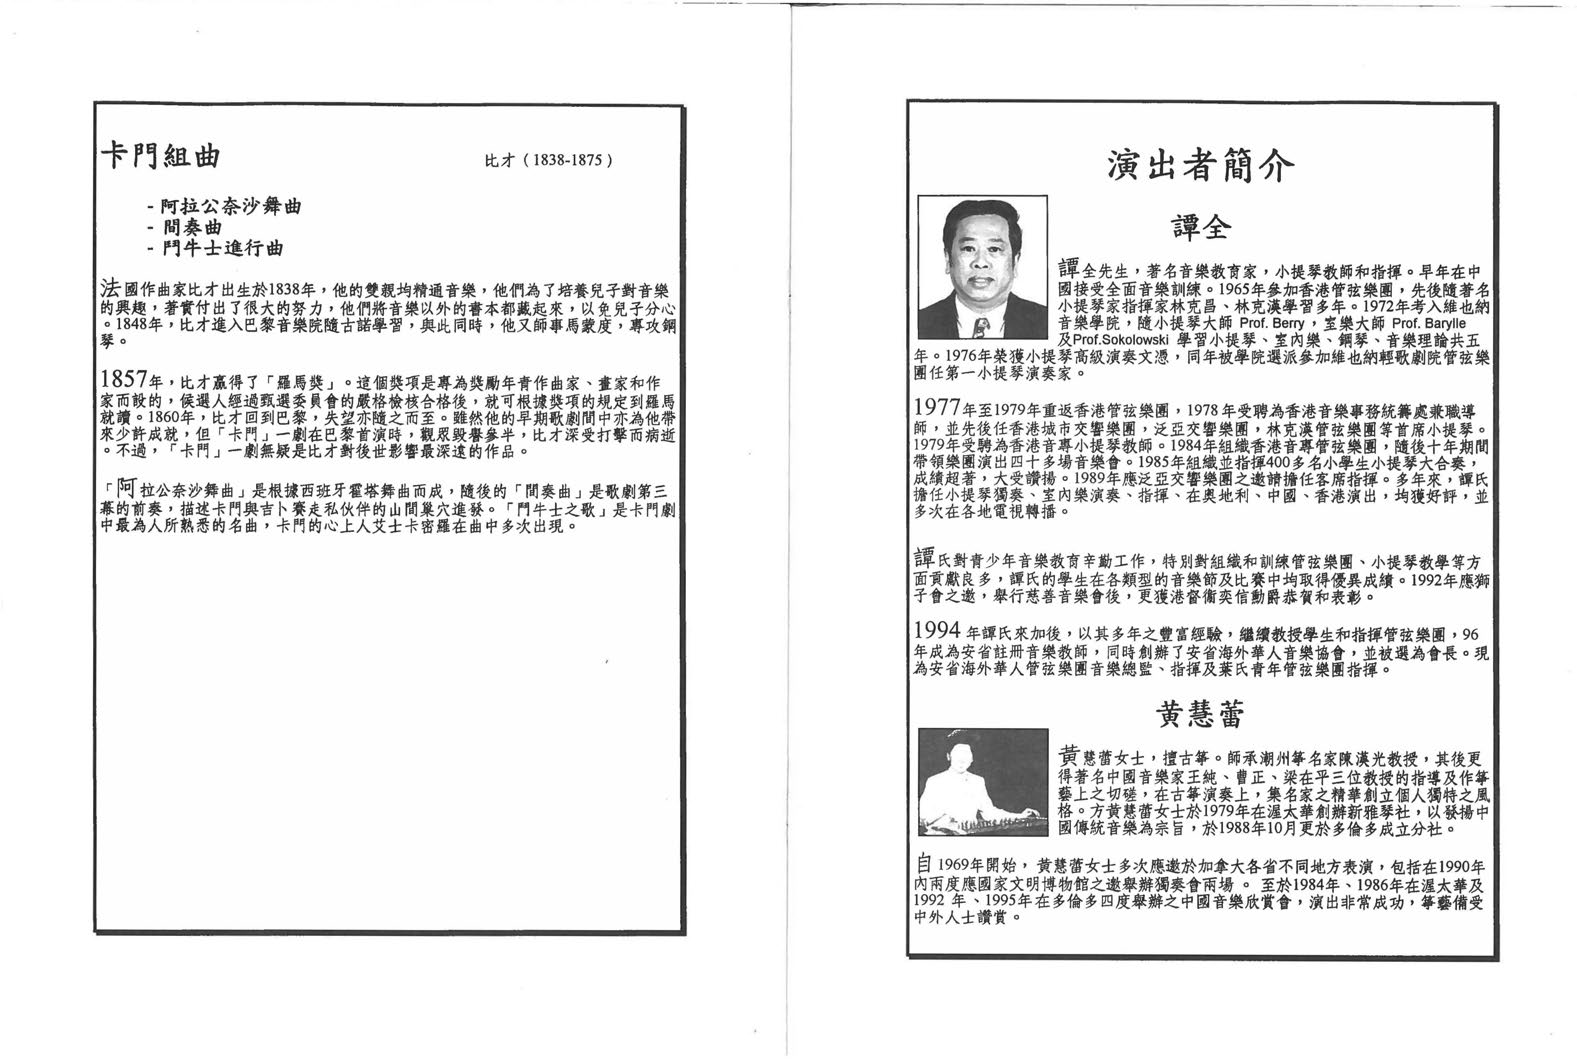 卡門組曲
比才（1838-1875）
- 阿拉公奈沙舞曲
- 間奏曲
- 鬥牛士進行曲
法國作曲家比才出生於1838年，他的雙親均精通音樂，他們為了培養兒子對音樂
的興趣，著實付出了很大的努力，他們將音樂以外的書本都藏起來，以免兒子分心
。1848年，比才進入巴黎音樂院隨古諾學習，與此同時，他又師事馬蒙度，專攻鋼
琴。
1857年，比才贏得了「羅馬獎」。這個獎項是專為獎勵年青作曲家、畫家和作
家而設的，候選人經過甄選委員會的嚴格檢核合格後，就可根據獎項的規定到羅馬
就讀。1860年，比才回到巴黎，失望亦隨之而至。雖然他的早期歌劇間中亦為他帶
來少許成就，但「卡門」一劇在巴黎首演時，觀眾毀譽參半，比才深受打擊而病逝
。不過，「卡門」一劇無疑是比才對後世影響最深遠的作品。
「阿拉公奈沙舞曲」是根據西班牙霍塔舞曲而成，隨後的「間奏曲」是歌劇第三
幕的前奏，描述卡門與吉卜賽走私伙伴的山間巢穴進發。「鬥牛士之歌」是卡門劇
中最為人所熟悉的名曲，卡門的心上人艾士卡密羅在曲中多次出現。
演出者簡介
譚全
譚全先生，著名音樂教育家，小提琴教師和指揮。早年在中
國接受全面音樂訓練。1965年參加香港管弦樂團，先後隨著名
小提琴家指揮家林克昌、林克漢學習多年。1972年考入維也納
音樂學院，隨小提琴大師 Prof. Berry，室樂大師 Prof. Barylle
及Prof.Sokolowski 學習小提琴、室內樂、鋼琴、音樂理論共五
年。1976年榮獲小提琴高級演奏文憑，同年被學院選派參加維也納輕歌劇院管弦樂
團任第一小提琴演奏家。
1977年至1979年重返香港管弦樂團，1978年受聘為香港音樂事務統籌處兼職導
師，並先後任香港城市交響樂團，泛亞交響樂團，林克漢管弦樂團等首席小提琴。
1979年受聘為香港音專小提琴教師。1984年組織香港音專管弦樂團，隨後十年期間
帶領樂團演出四十多場音樂會。1985年組織並指揮400多名小學生小提琴大合奏，
成績超著，大受讚揚。1989年應泛亞交響樂團之邀請擔任客席指揮。多年來，譚氏
擔任小提琴獨奏、室內樂演奏、指揮、在奧地利、中國、香港演出，均獲好評，並
多次在各地電視轉播。
譚氏對青少年音樂教育辛勤工作，特別對組織和訓練管弦樂團、小提琴教學等方
面貢獻良多，譚氏的學生在各類型的音樂節及比賽中均取得優異成績。1992年應獅
子會之邀，舉行慈善音樂會後，更獲港督衛奕信勳爵恭賀和表彰。
1994 年譚氏來加後，以其多年之豐富經驗，繼續教授學生和指揮管弦樂團，96
年成為安省註冊音樂教師，同時創辦了安省海外華人音樂協會，並被選為會長。現
為安省海外華人管弦樂團音樂總監、指揮及葉氏青年管弦樂團指揮。
黃慧蕾
黃慧蕾女士，擅古箏。師承潮州箏名家陳漢光教授，其後更
得著名中國音樂家王純、曹正、梁在平三位教授的指導及作箏
藝上之切磋，在古箏演奏上，集名家之精華創立個人獨特之風
格。方黃慧蕾女士於1979年在渥太華創辦新雅琴社，以發揚中
國傳統音樂為宗旨，於1988年10月更於多倫多成立分社。
自 1969年開始， 黃慧蕾女士多次應邀於加拿大各省不同地方表演，包括在1990年
內兩度應國家文明博物館之邀舉辦獨奏會兩場 。 至於1984年、1986年在渥太華及
1992 年、1995年在多倫多四度舉辦之中國音樂欣賞會，演出非常成功，箏藝備受
中外人士讚賞。